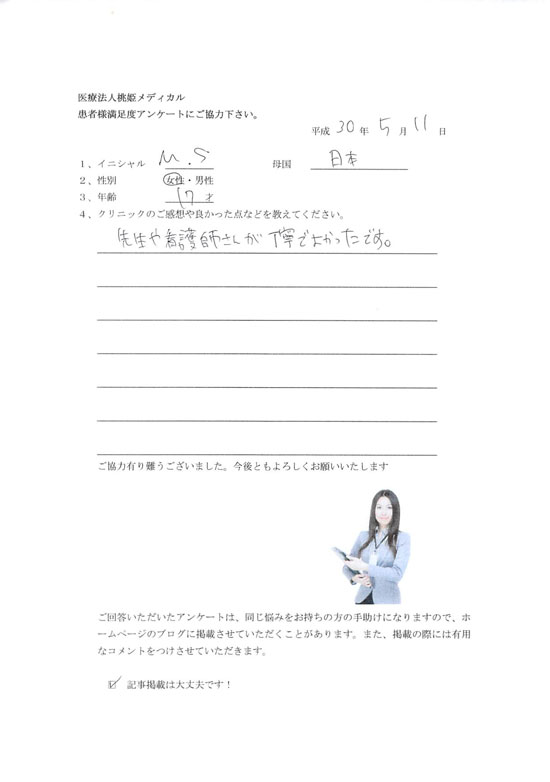 医療法人桃姫メディカル
患者様満足度アンケートにご協力下さい。
平成 30 年 5 月 11 日
1、イニシャル M.S 母国 日本
2、性別 女性・男性
3、年齢 17 才
4、クリニックのご感想や良かった点などを教えてください。
先生や看護師さんが丁寧でよかったです。
ご協力有り難うございました。今後ともよろしくお願いいたします
ご回答いただいたアンケートは、同じ悩みをお持ちの方の手助けになりますので、ホ
ームページのブログに掲載させていただくことがあります。また、掲載の際には有用
なコメントをつけさせていただきます。
☑ 記事掲載は大丈夫です！